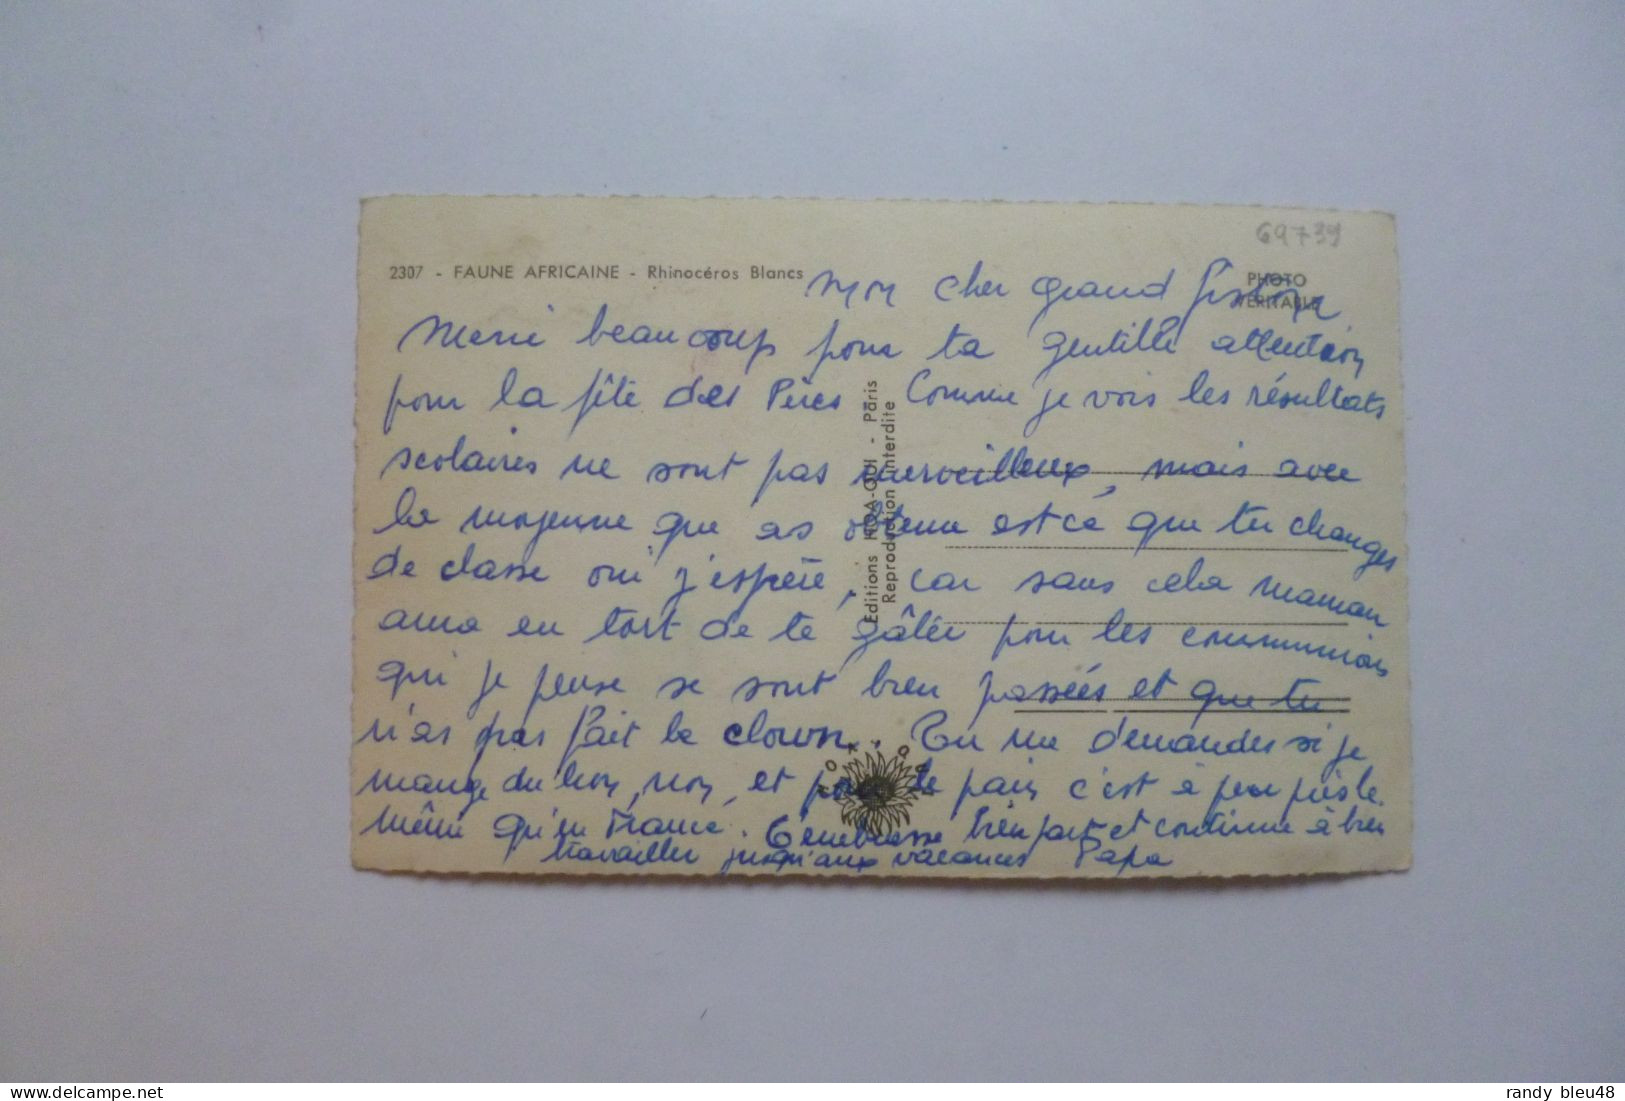 69739
2307 - FAUNE AFRICAINE - Rhinocéros Blancs
PHOTO
VÉRITABLE
Mon cher grand
Merci beaucoup pour ta gentille attention
pour la fête des Pères Comme je vois les résultats
scolaires ne sont pas merveilleux, mais avec
la moyenne que as obtenue est ce que tu changes
de classe oui j'espère, car sans cela maman
aura eu tort de te gâter pour les communions
qui je pense se sont bien passées et que tu
n'as pas fait le clown. Tu me demandes si je
mange du lion, non, et pour le pain c'est à peu près le
même qu'en France. T'embrasse bien fort et continue à bien
travailler jusqu'aux vacances Papa
Editions HOA-QUI - Paris
Reproduction interdite
randy bleu48